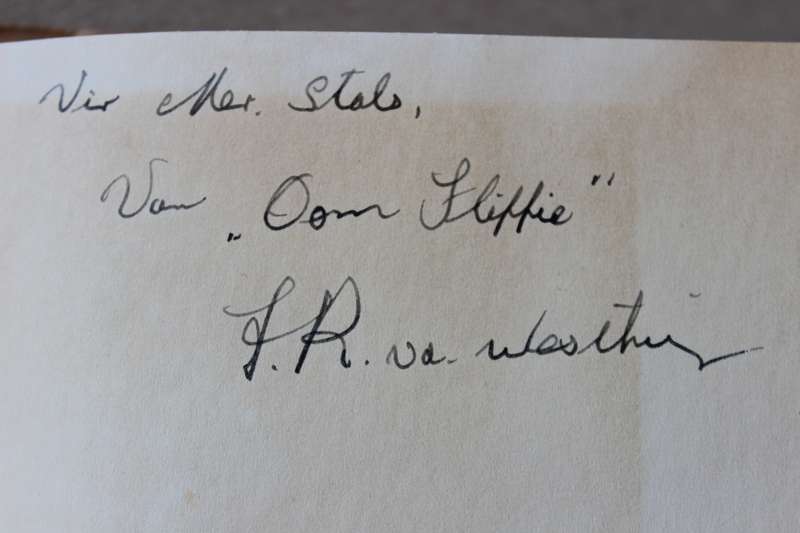 Vir Mev. Stals,
Van „Oom Flippie”
F.R. vd.